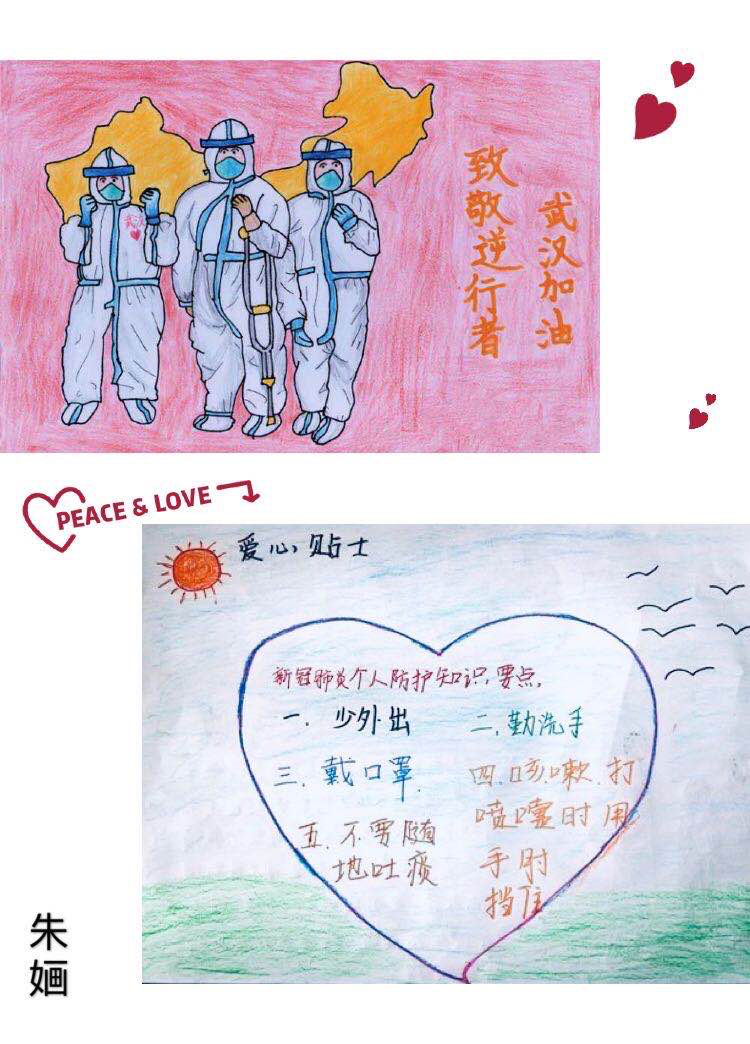 武汉加油
致敬逆行者
武汉
PEACE & LOVE
爱心贴士
新冠肺炎个人防护知识,要点,
一.少外出
二.勤洗手
三.戴口罩.
四.咳嗽.打
喷嚏时用
手肘
挡住
五.不要随
地吐痰
朱婳